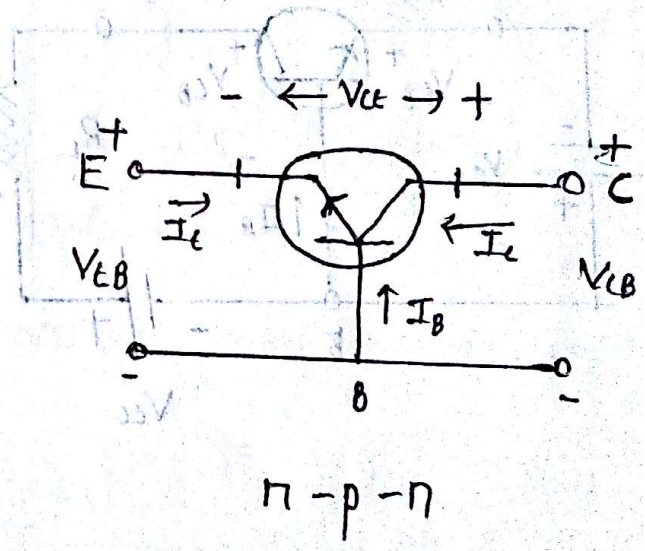 - ← VCE → +
+ +
E C
IE IC
VEB VCB
IB
- B -
n-p-n